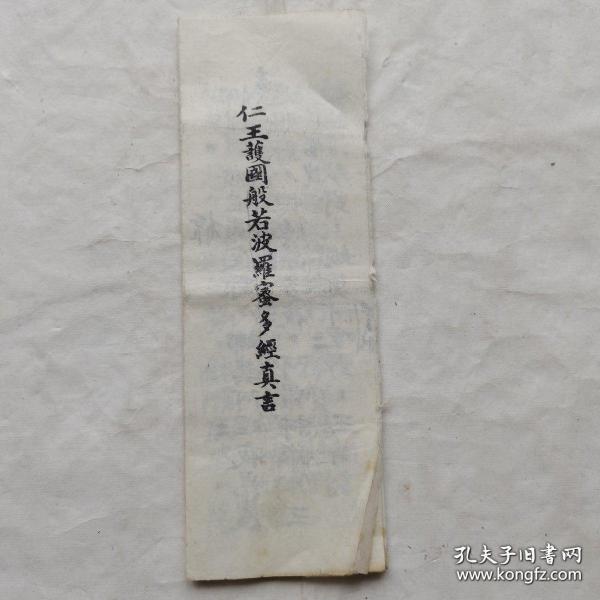 仁王護國般若波羅蜜多經真言
孔夫子旧书网
www.kongfz.com